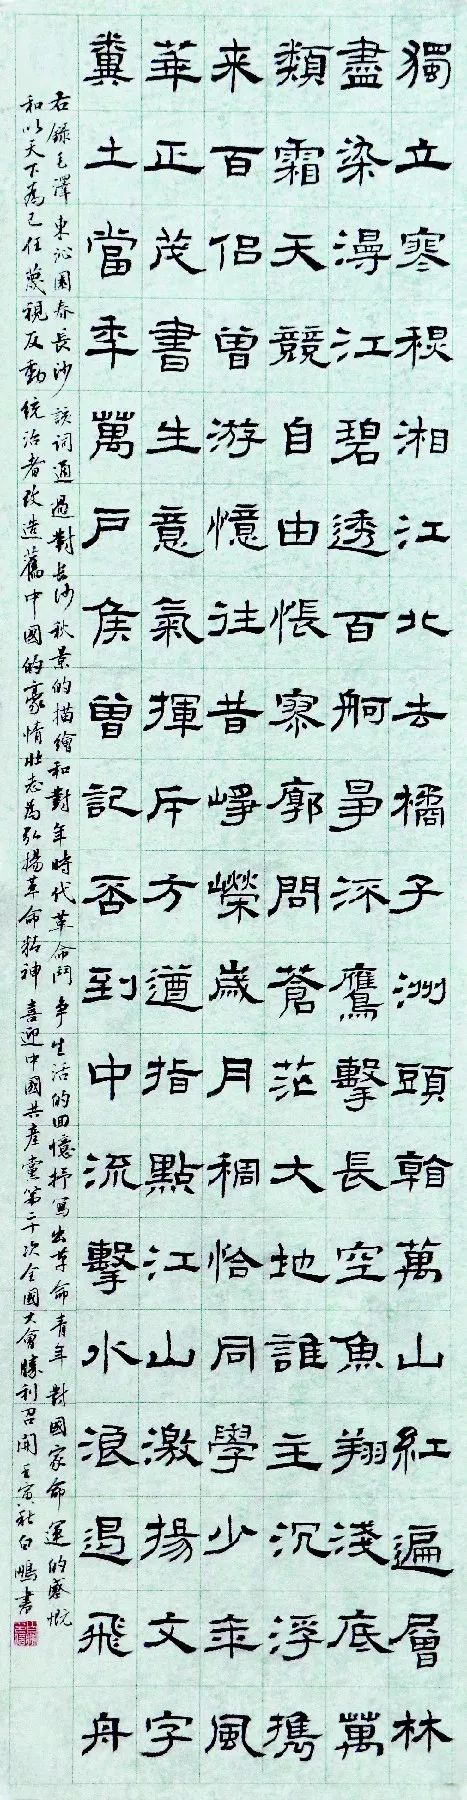 獨立寒秋湘江北去橘子洲頭看萬山紅遍層林
盡染漫江碧透百舸爭流鷹擊長空魚翔淺底萬
類霜天競自由悵寥廓問蒼茫大地誰主沉浮攜
来百侣曾游憶往昔崢嶸歲月稠恰同學少年風
華正茂書生意氣揮斥方遒指點江山激揚文字
糞土當年萬戶侯曾記否到中流擊水浪遏飛舟
右錄毛澤東沁園春長沙該詞通過對長沙秋景的描繪和對年時代革命鬥爭生活的回憶抒寫出革命青年對國家命運的感慨
和以天下為己任蔑視反動統治者改造舊中國的豪情壯志為弘揚革命精神喜迎中國共產黨第二十次全國大會勝利召開壬寅秋白鵬書